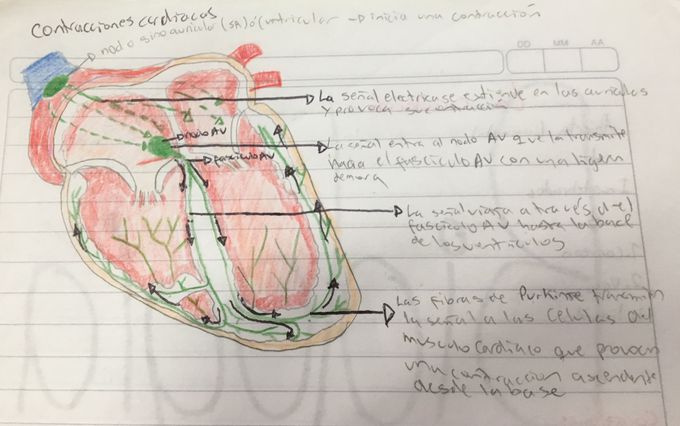 Contracciones cardiacas
nodo sinoauriculo (SA) ó (ventricular → inicia una contracción
DD MM AA
La señal electrica se extiende en las auriculas
y provoca su contracción
nodo AV
La señal entra al nodo AV que la transmite
hacia el fasciculo AV con una ligera
demora
fasciculo AV
La señal viaja a través del
fasciculo AV hasta la base
de los ventriculos
Las fibras de Purkinje transmiten
la señal a las células del
musculo cardiaco que provocan
una contraccion ascendente
desde la base